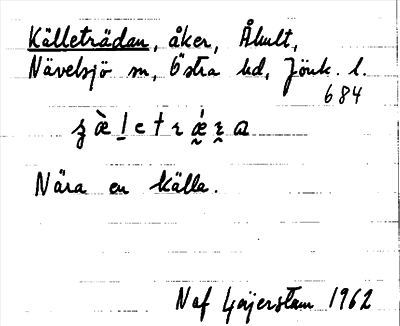 Källeträdan, åker, Åhult,
Nävelsjö sn, Östra hd, Jönk. l.
684
Nära en källa.
N af Geijerstam 1962